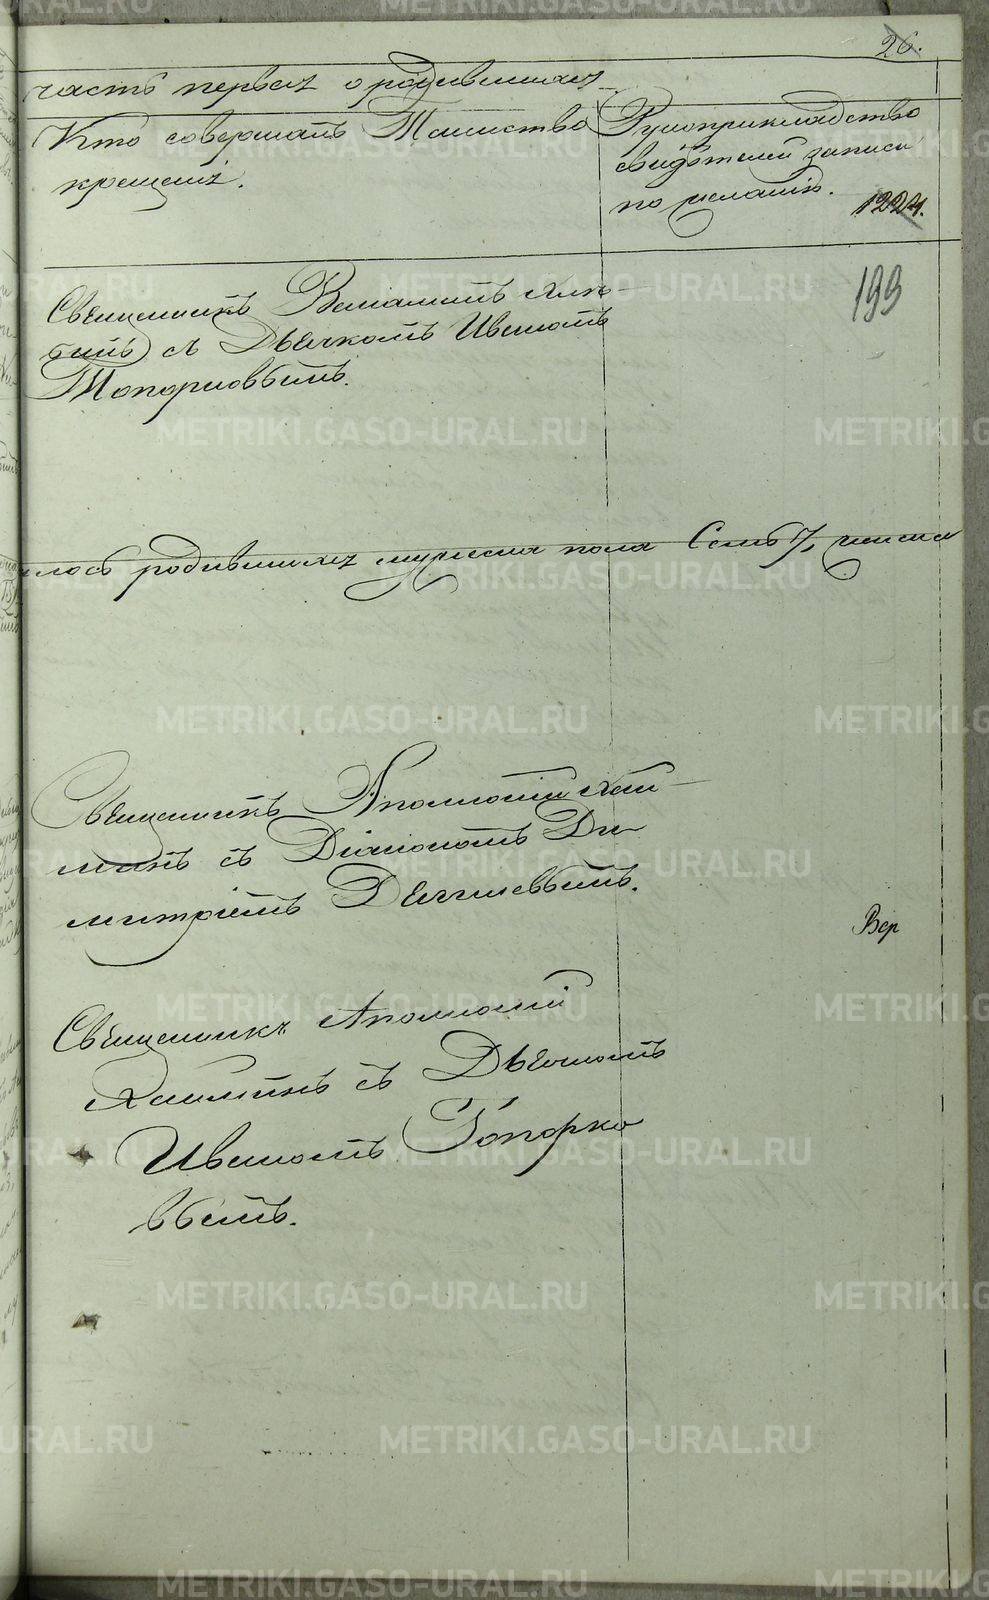 26.
часть первая о родившихся
Кто совершалъ Таинство
крещенія.
Рукоприкладство
свидѣтелей записи
по желанію.
1224.
199
Священникъ Веніаминъ
съ Дьячкомъ Иваномъ
Топорковымъ.
лось родившихся мужеска пола Семь 7, женска
Священникъ Аполлоній Хан
минъ съ Діакономъ Ди
митріемъ
Вер
Священникъ Аполлоній
съ Дьячкомъ
Иваномъ Топорко
вымъ.